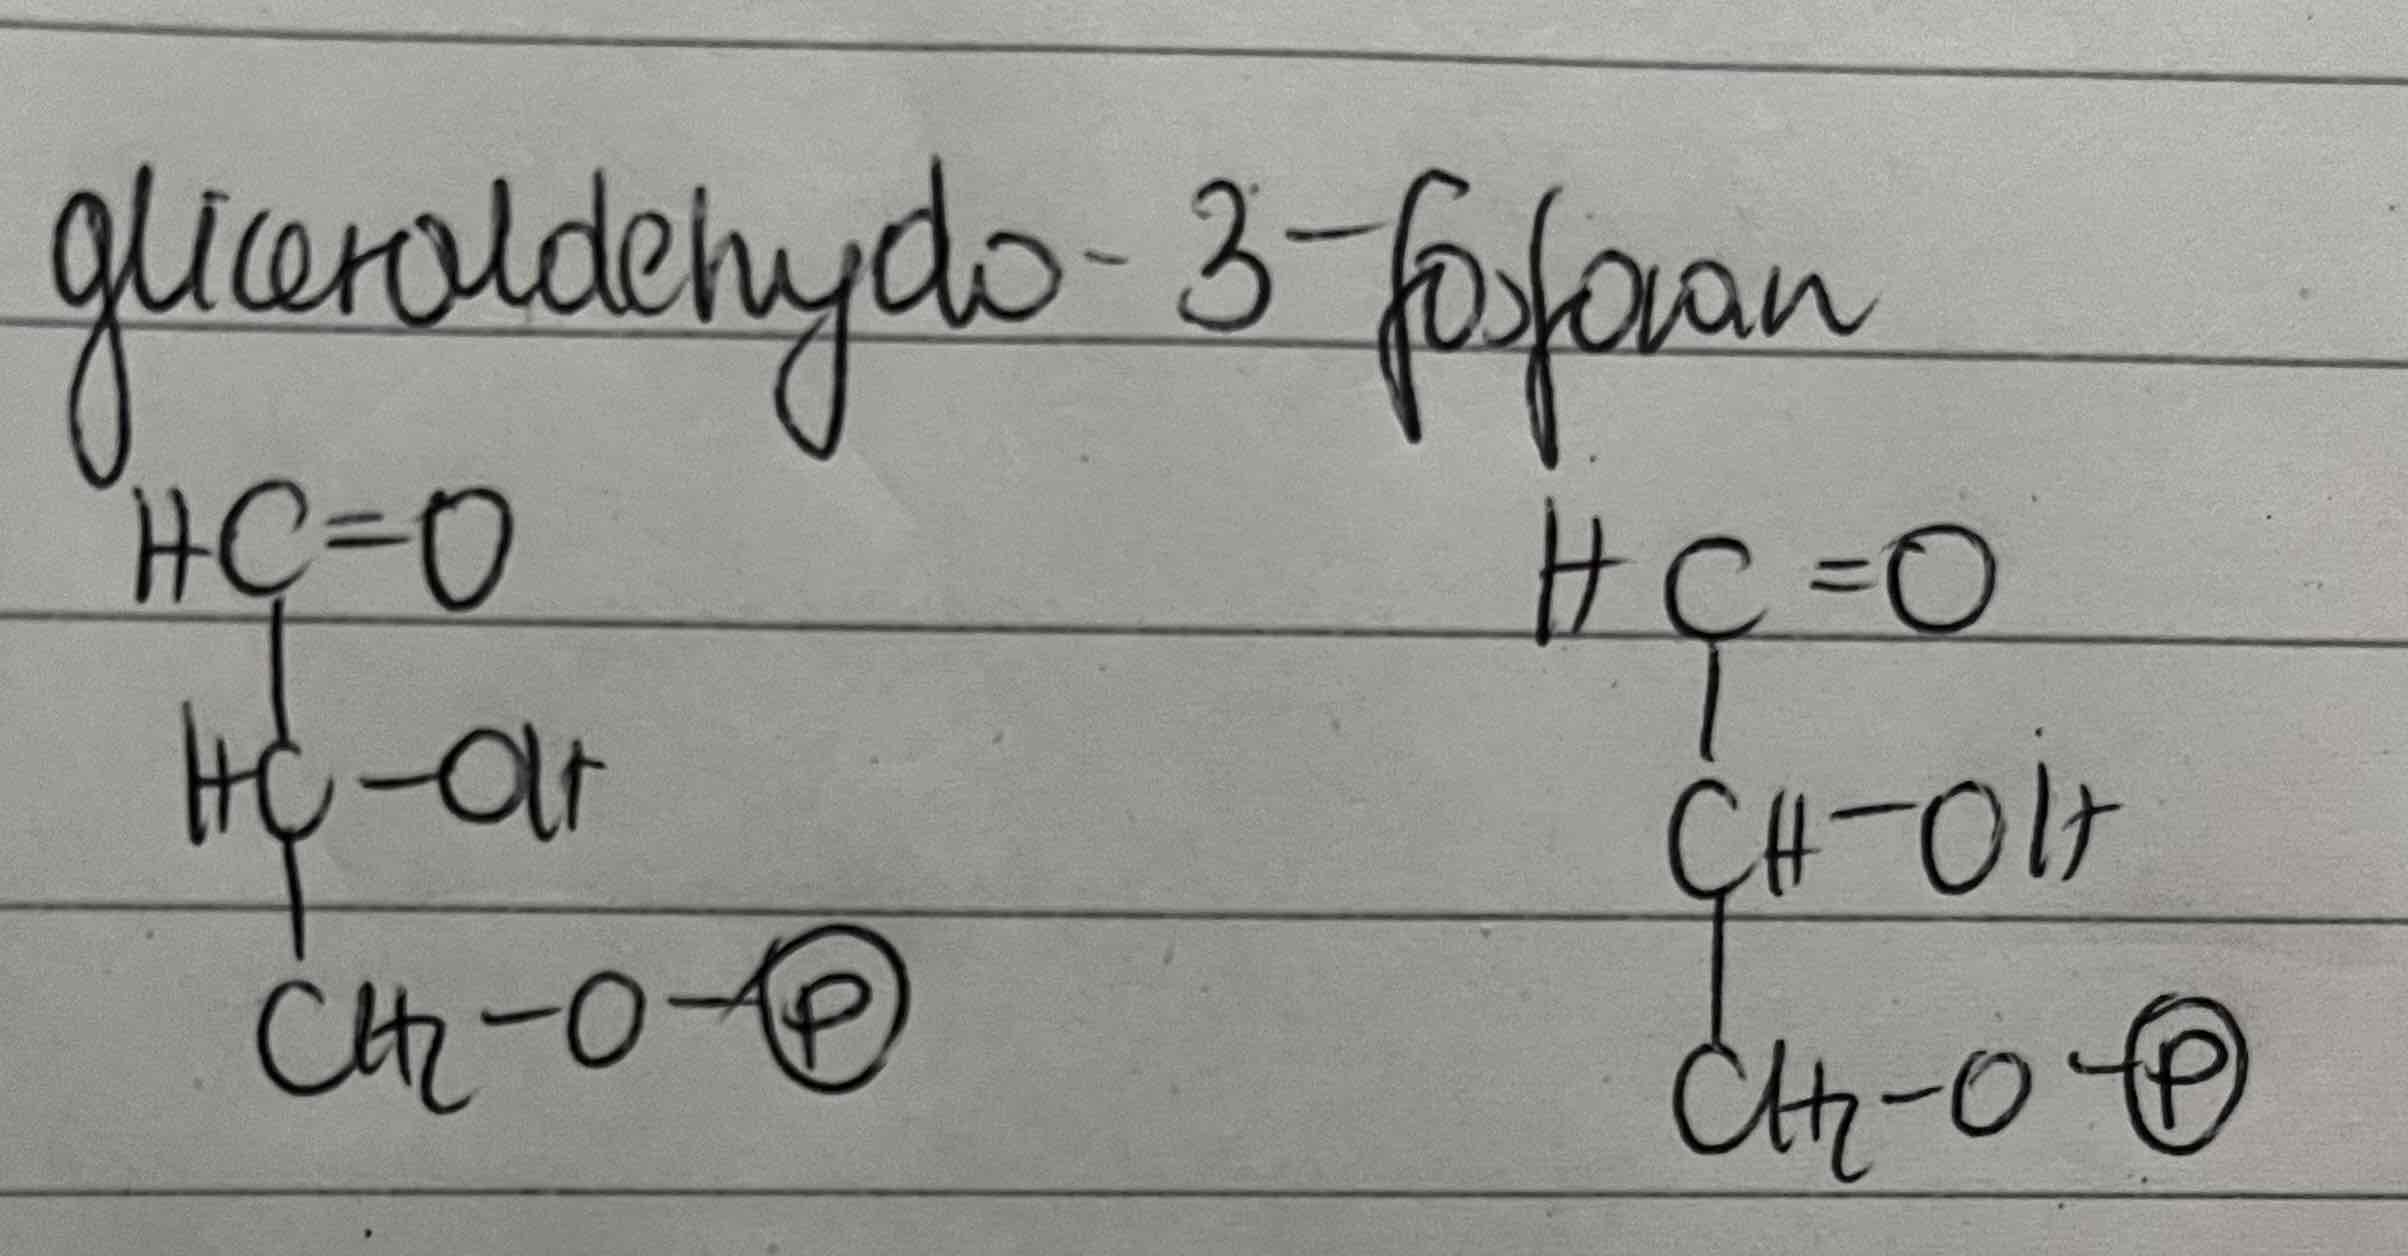 gliceraldehydo-3-fosforan
HC=O HC=O
HC-OH CH-OH
CH2-O-P CH2-O-P